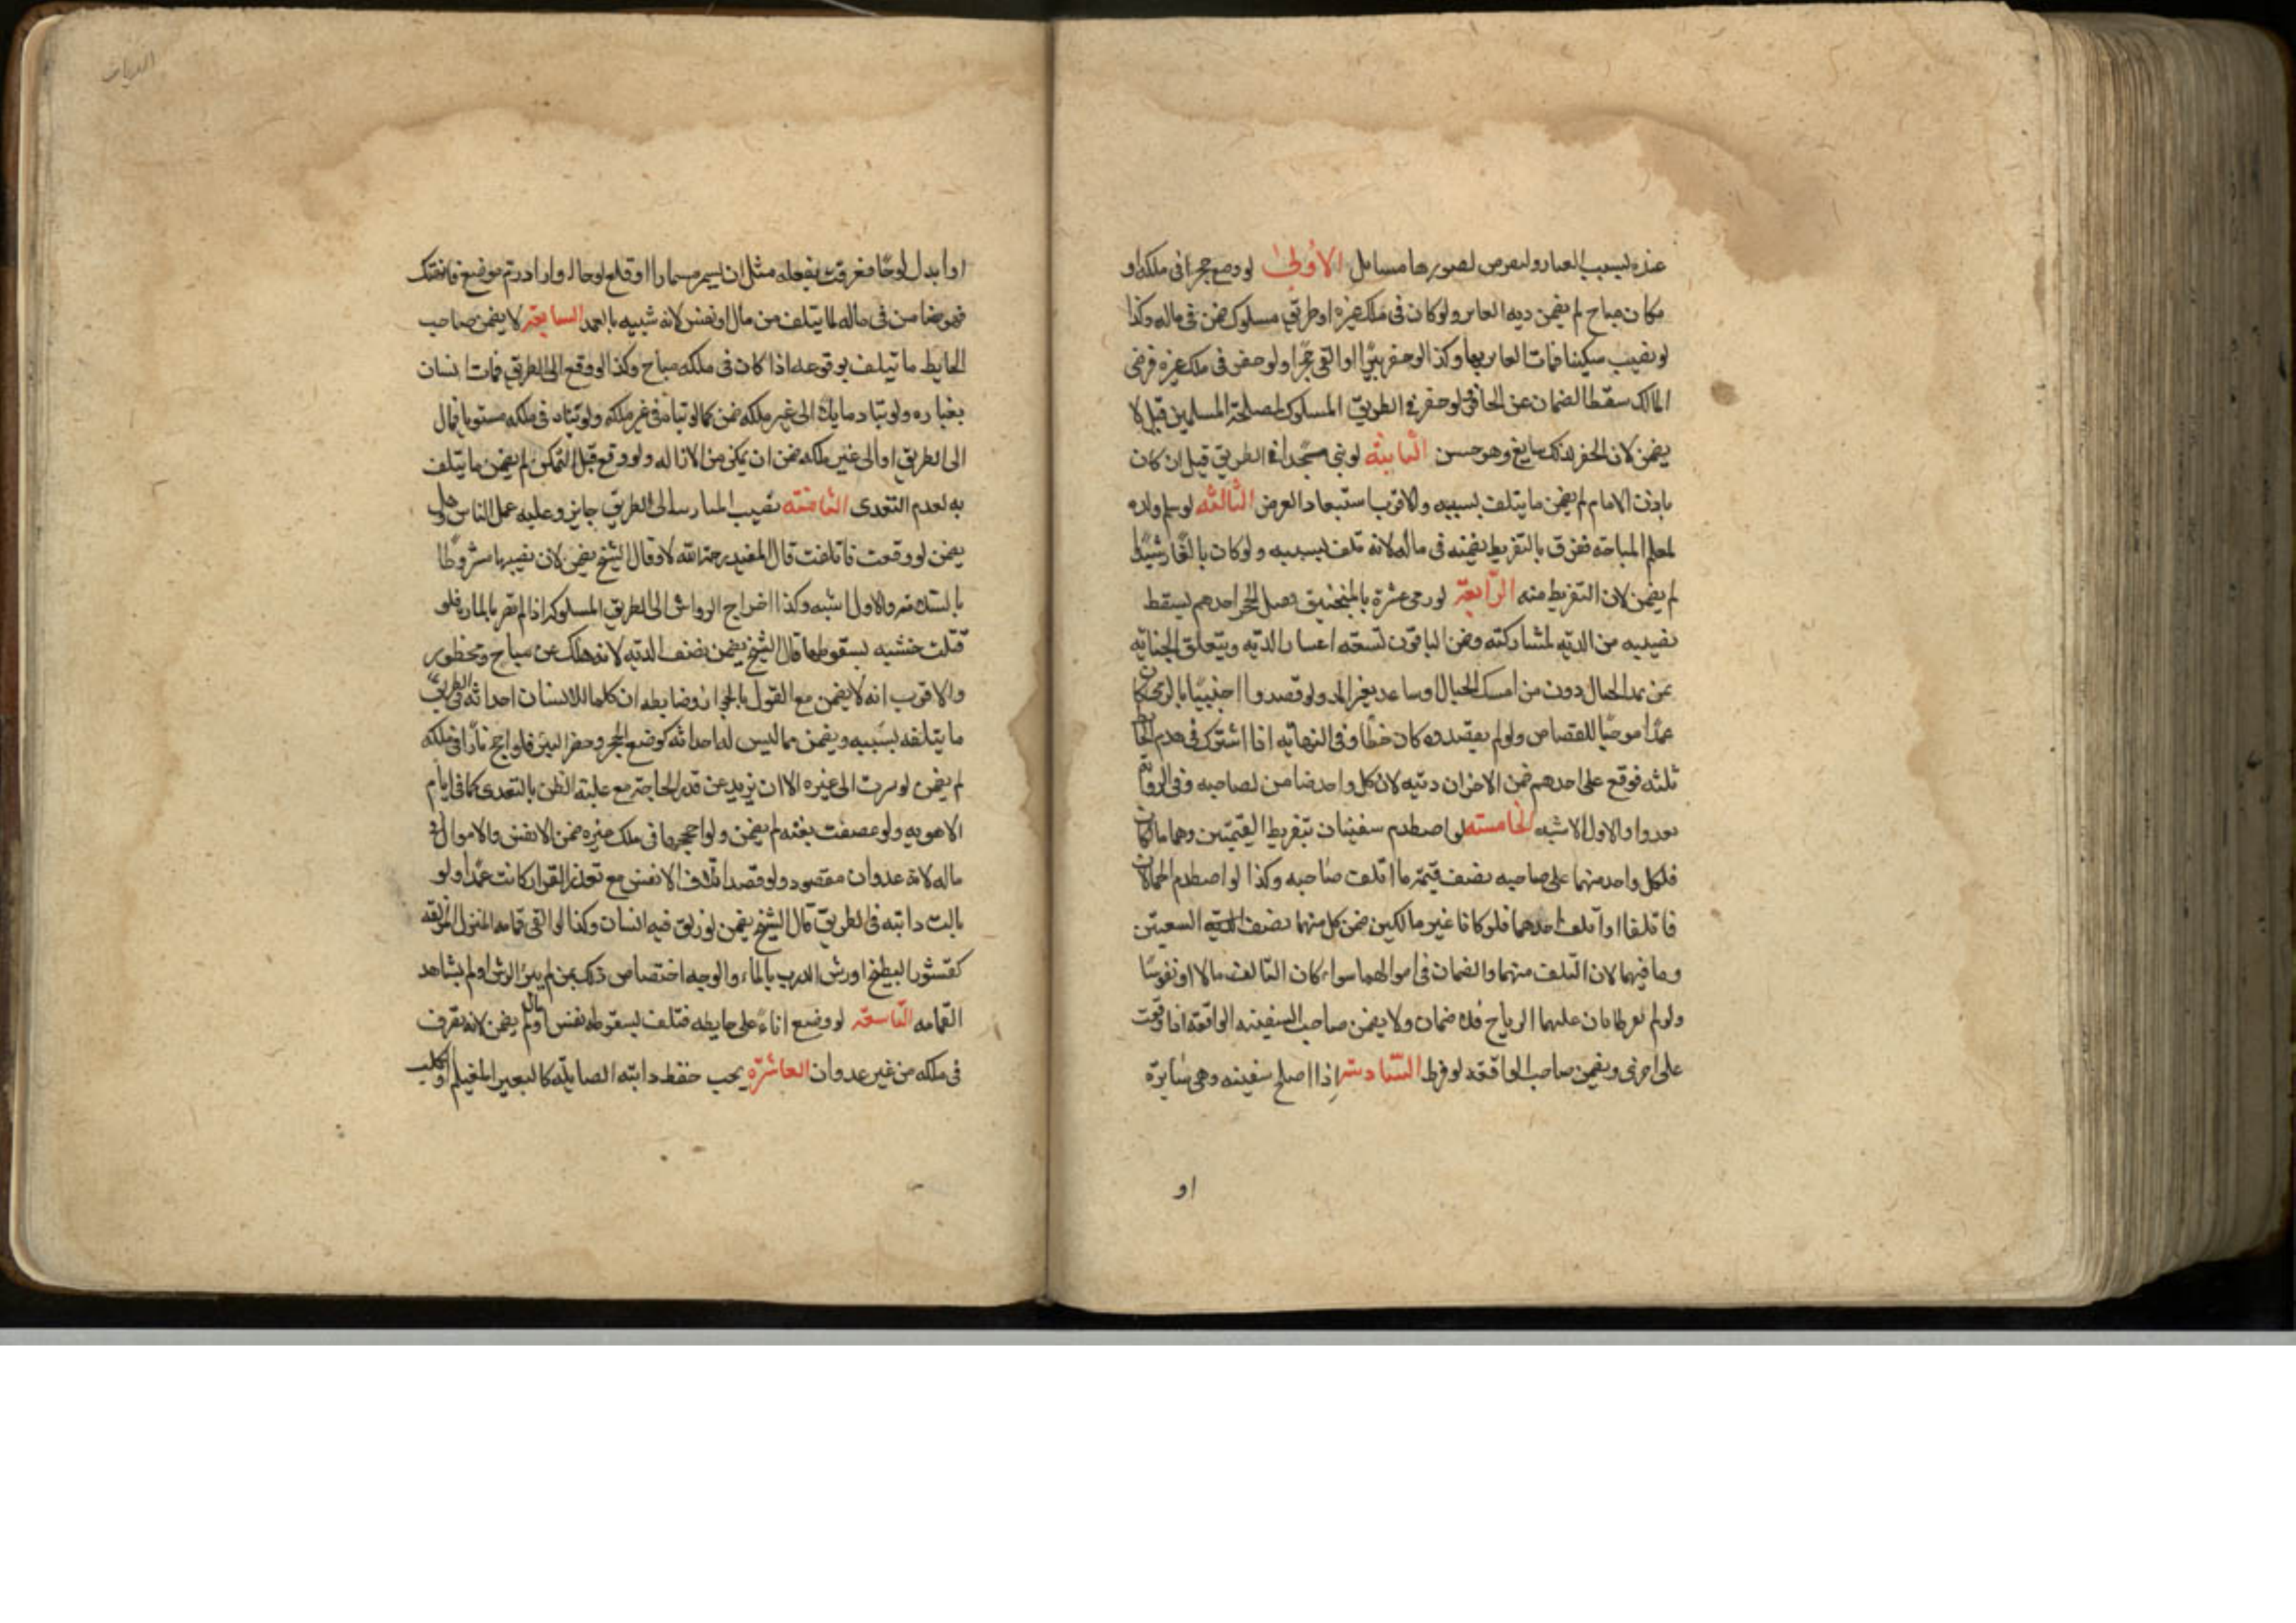 عنده لسبب العثار ولنفرض لصورها مسائل الاولى لو وضع حجرا فى ملكه او
مكان مباح لم يضمن دية العاثر ولو كان فى ملك غيره او طريق مسلوك ضمن فى ماله وكذا
لو نصب سكينا فمات العاثر بها وكذا لو حفر بئرا او القى حجرا ولو حفر فى ملك غيره فرضى
المالك سقط الضمان عن الحافر ولو حفر فى الطريق المسلوك لمصلحة المسلمين قيل لا
يضمن لان الحفر لذلك سايغ وهو حسن الثانية لو بنى مسجدا فى الطريق قيل ان كان
باذن الامام لم يضمن ما يتلف بسببه والاقرب استبعاد الفرض الثالثة لو سلم ولده
لمعلم السباحة فغرق بالتفريط ضمنه فى ماله لانه تلف بسببه ولو كان بالغا رشيدا
لم يضمن لان التفريط منه الرابعة لو رمى عشرة بالمنجنيق فقتل الحجر احدهم يسقط
نصيبه من الدية لمشاركته وضمن الباقون تسعة اعشار الدية ويتعلق الجناية
بمن مد الحبال دون من امسك الخشب او ساعد بغير المد ولو قصدوا اجنبيا بالرمى كان
عمدا موجبا للقصاص ولو لم يقصدوه كان خطأ وفى النهاية اذا اشترك فى هدم الحائط
ثلثة فوقع على احدهم ضمن الاخران ديته لان كل واحد ضامن لصاحبه وفى الرواية
بعد والاول الاشبه الخامسة لو اصطدم سفينتان بتفريط القيمين وهما مالكان
فلكل واحد منهما على صاحبه نصف قيمة ما اتلف صاحبه وكذا لو اصطدم الحمالان
فاتلفا او اتلف احدهما فلو كانا غير مالكين ضمن كل منهما نصف السفينتين
وما فيهما لان التلف منهما والضمان فى اموالهما سواء كان التالف مالا او نفوسا
ولو لم يفرطا بان غلبهما الرياح فلا ضمان ولا يضمن صاحب السفينة الواقفة اذا وقعت
على اخرى ويضمن صاحب الواقعة لو فرط السادسة اذا اصلح سفينة وهى سايرة
او
الديات
او ابدل لوحا فغرقت بفعله مثل ان يسمر مسمارا او قلع لوحا او اراد رم موضع فانهتك
فهو ضامن فى ماله لما يتلف من مال او نفس لانه شبيه بالعمد السابعة لا يضمن صاحب
الحايط ما يتلف بوقوعه اذا كان فى ملكه مباح وكذا لو وقع الى الطريق فمات انسان
بغباره ولو بناه مايلا الى غير ملكه ضمن كما لو بناه فى غير ملكه ولو بناه فى ملكه مستويا فمال
الى الطريق او الى غير ملكه ضمن ان تمكن من الازالة ولو وقع قبل التمكن لم يضمن ما يتلف
به لعدم التعدى الثامنة نصب الميازيب الى الطريق جايز وعليه عمل الناس وهل
يضمن لو وقعت فاتلفت قال المفيد رحمه الله لا وقال الشيخ يضمن لان نصبها مشروطا
بالسلامة والاول اشبه وكذا اخراج الرواشن الى الطريق المسلوكة اذا لم تضر بالمارة فلو
قتلت خشبة بسقوطها قال الشيخ يضمن نصف الدية لانه هلك عن مباح ومحظور
والاقرب انه لا يضمن مع القول بالجواز وضابطه ان كلما للانسان احداثه فى الطريق لا يضمن
ما يتلفه بسببه ويضمن مما ليس له احداثه كوضع الحجر وحفر البئر فلو اجج نارا فى ملكه
لم يضمن لو سرت الى غيره الا ان يزيد عن قدر الحاجة مع غلبة الظن بالتعدى كما فى ايام
الاهوية ولو عصفت بغتة لم يضمن ولو اججها فى ملك غيره ضمن الانفس والاموال فى
ماله لانه عدوان مقصود ولو قصد اتلاف الانفس مع تعذر الفرار كانت عمدا ولو
بالت دابته فى الطريق قال الشيخ يضمن لو زلق فيه انسان وكذا لو القى قمامة المنزل المزلقة
كقشور البطيخ او رش الدرب بالماء والوجه اختصاص ذلك بمن لم ير الرش او لم يشاهد
القمامة التاسعة لو وضع اناء على حايطه فتلف بسقوطه نفس او مال لم يضمن لانه تصرف
فى ملكه من غير عدوان العاشرة يجب حفظ دابته الصايلة كالبعير المغتلم او الكلب